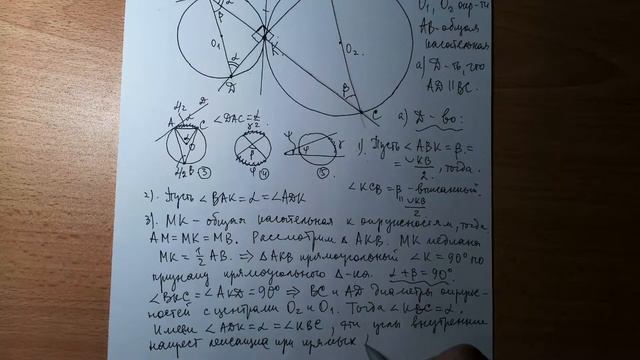 O₁, O₂ окр-ти
AB - общая
касательная
а) Д-ть, что
AD || BC.
а) Д-во:
β
O₁
α
D
K
O₂
β
C
∠DAC = α/2
A
C
B
③
④
⑤
1). Пусть ∠ABK = β =
= ∪KB/2, тогда
∠KCB = β - вписанный.
∪KB/2
2). Пусть ∠BAK = α = ∠ADK
3). MK - общая касательная к окружностям, тогда
AM = MK = MB. Рассмотрим Δ AKB. MK медиана
MK = 1/2 AB. ⇒ Δ AKB прямоугольный ∠K = 90° по
признаку прямоугольного Δ-ка. α + β = 90°.
∠BKC = ∠AKD = 90° ⇒ BC и AD диаметры окруж-
ностей с центрами O₂ и O₁. Тогда ∠KBC = α.
Имеем ∠ADK = α = ∠KBC, эти углы внутренние
накрест лежащие при прямых